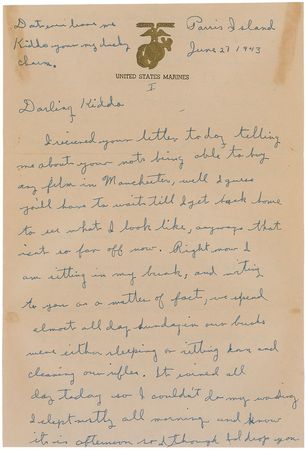 Dont ever leave me
Kiddo your my lucky
charm.
Parris Island
June 27 1943
UNITED STATES MARINES
I
Darling Kiddo
I recieved your letter today telling
me about your not being able to buy
any film in Manchester, well I guess
you'll have to wait till I get back home
to see what I look like, anyways that
isnt so far off now. Right now I
am sitting in my bunk, and writing
to you as a matter of fact, we spend
almost all day Sunday in our bunks
were either sleeping or sitting down and
cleaning our rifles. It rained all
day today so I couldn't do my washing
I slept mostly all morning and know
it is afternoon so I though Id drop you